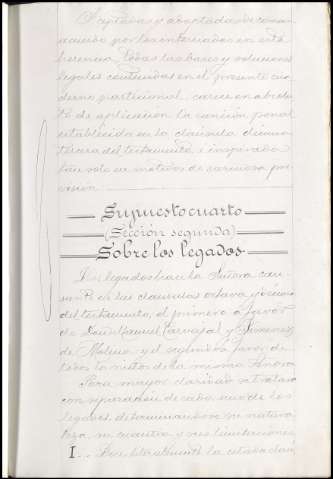 Aceptadas y adoptadas de comun
acuerdo por los interesados en esta
herencia todas las bases y soluciones
legales contenidas en el presente cua
derno particional, carece en absolu
to de aplicación la sanción penal
establecida en la cláusula décimo
tercera del testamento e inspirada
tan solo en motivos de cariñosa pre
visión
Supuesto cuarto
(Sección segunda)
Sobre los legados
Dos legados hace la Señora cau
sante en las cláusulas octava y
del testamento, el primero a favor
de Don Manuel Carvajal y Jimenez
de Molina y el segundo a favor de
todos los nietos de la misma Señora
Para mayor claridad se tratará
con separación de cada uno de los
legados, determinando su natura
leza, su cuantía y sus limitaciones
I... Dice literalmente la citada cláu